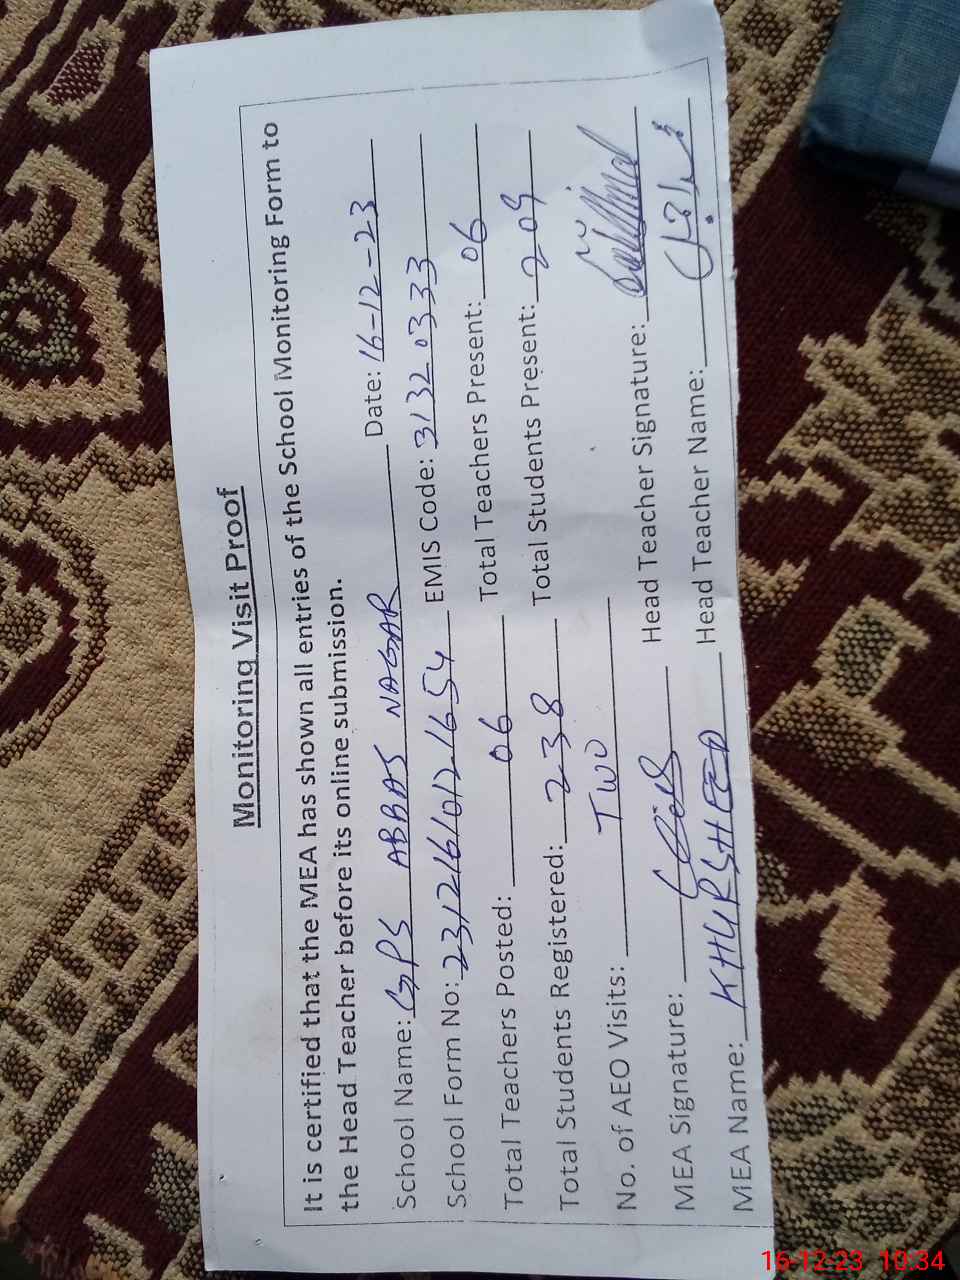 Monitoring Visit Proof
It is certified that the MEA has shown all entries of the School Monitoring Form to
the Head Teacher before its online submission.
School Name: GPS ABBAS NAGAR Date: 16-12-23
School Form No: 231216101221654 EMIS Code: 31320333
Total Teachers Posted: 06 Total Teachers Present: 06
Total Students Registered: 238 Total Students Present: 209
No. of AEO Visits: TWO
MEA Signature: Head Teacher Signature:
MEA Name: KHURSHEED Head Teacher Name:
16-12-23 10:34